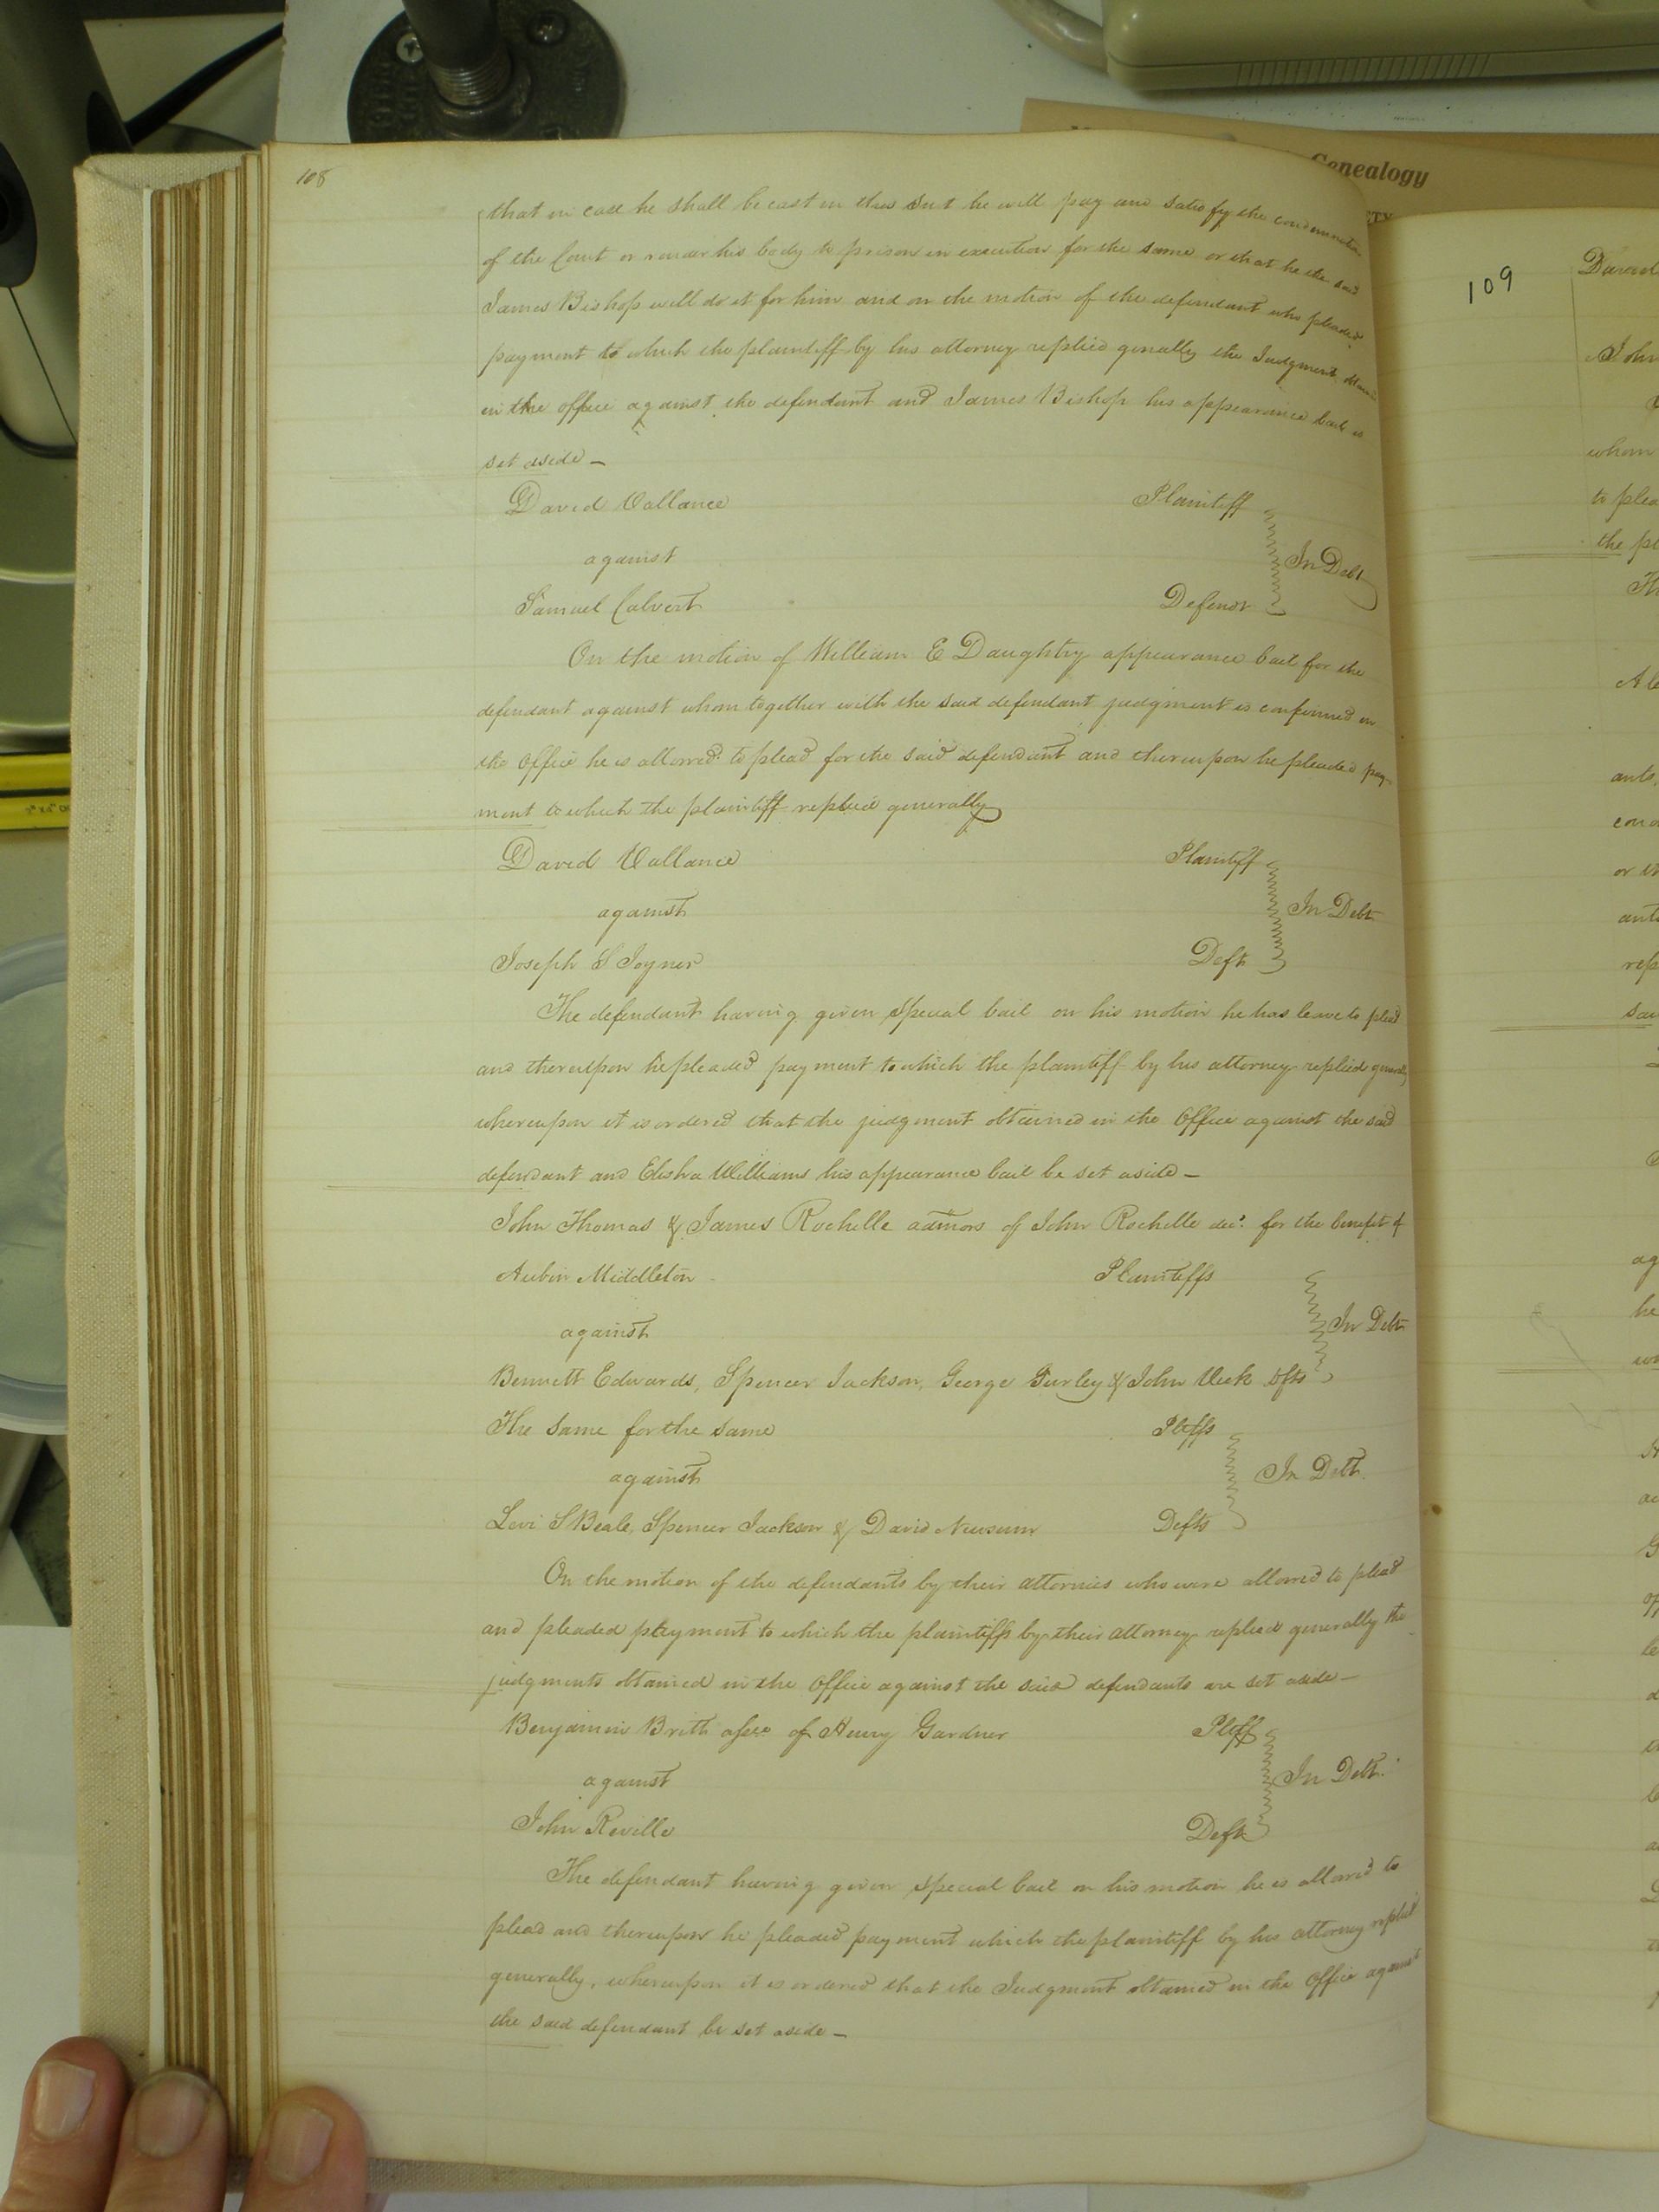 Genealogy
108
that in case he shall be cast in this Suit he will pay and satisfy the condemnation
of the Court or render his body to prison in execution for the same or that he the said
James Bishop will do it for him and on the motion of the defendant who pleaded
payment to which the plaintiff by his attorney replied genally the Judgment
in the office against the defendant and James Bishop his appearance bail is
set aside —
David Vallance Plaintiff
against In Debt
Samuel Calvert Defendt
On the motion of William E Daughtry appearance bail for the
defendant against whom together with the said defendant judgment is confirmed in
the Office he is allowed to plead for the said defendant and thereupon he pleaded pay-
ment to which the plaintiff replied generally
David Vallance Plaintiff
against In Debt
Joseph S Joyner Deft
The defendant having given special bail on his motion he has leave to plead
and thereupon he pleaded payment to which the plaintiff by his attorney replied generally
whereupon it is ordered that the judgment obtained in the Office against the said
defendant and Elisha Williams his appearance bail be set aside —
John Thomas & James Rochelle admors of John Rochelle decd. for the benefit of
Aubin Middleton Plaintiffs
against In Debt
Bennett Edwards, Spencer Jackson, George Gurley & John Vick Dfts
The same for the same Pltffs
against In Debt
Levi S Beale, Spencer Jackson & David Newsum Defts
On the motion of the defendants by their attornies who were allowed to plead
and pleaded payment to which the plaintiffs by their attorney replied generally the
judgments obtained in the Office against the said defendants are set aside —
Benjamin Britt assee of Henry Gardner Pltff
against In Debt
John Reville Deft
The defendant having given special bail on his motion he is allowed to
plead and thereupon he pleaded payment which the plaintiff by his attorney replied
generally, whereupon it is ordered that the Judgment obtained in the Office against
the said defendant be set aside —
109
whom
to plea
the pl
ants.